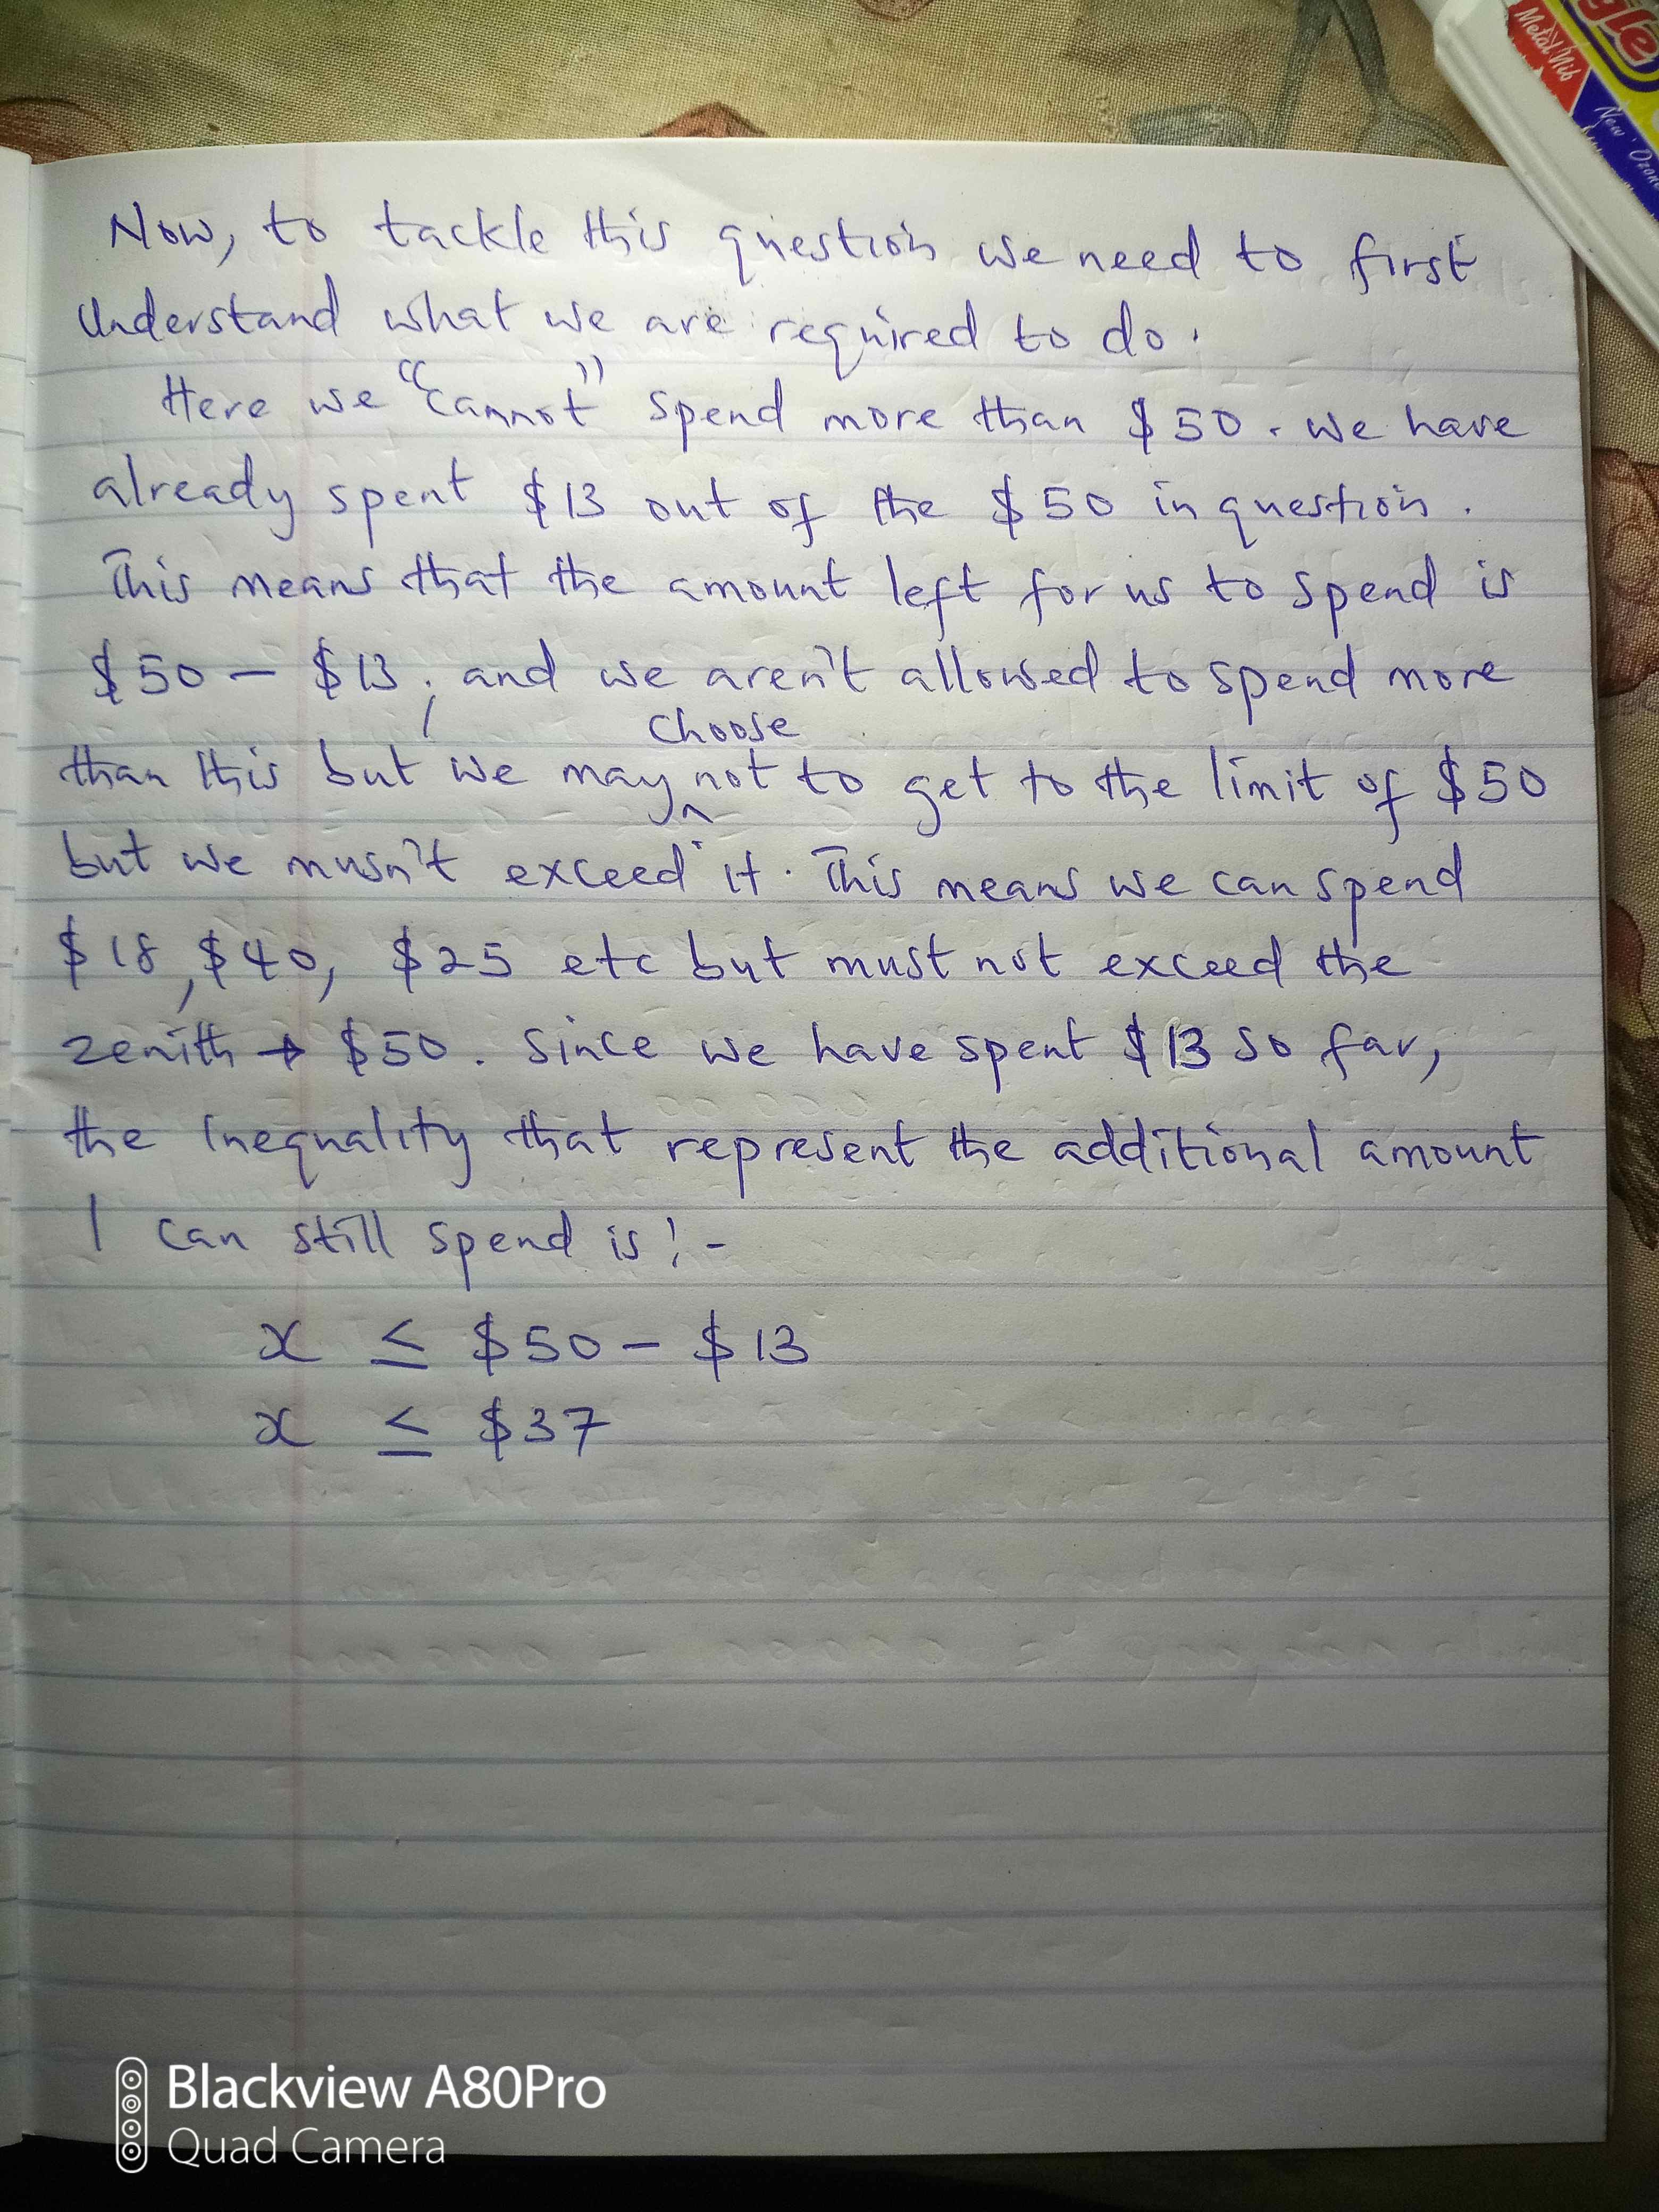 Now, to tackle this question we need to first
understand what we are required to do.
Here we "cannot" spend more than $50. We have
already spent $13 out of the $50 in question.
This means that the amount left for us to spend is
$50 - $13, and we aren't allowed to spend more
than this but we may choose not to get to the limit of $50
but we musn't exceed it. This means we can spend
$18, $40, $25 etc but must not exceed the
zenith → $50. Since we have spent $13 so far,
the inequality that represent the additional amount
I can still spend is:-
x ≤ $50 - $13
x ≤ $37
Metal Nib
New
Blackview A80Pro
Quad Camera